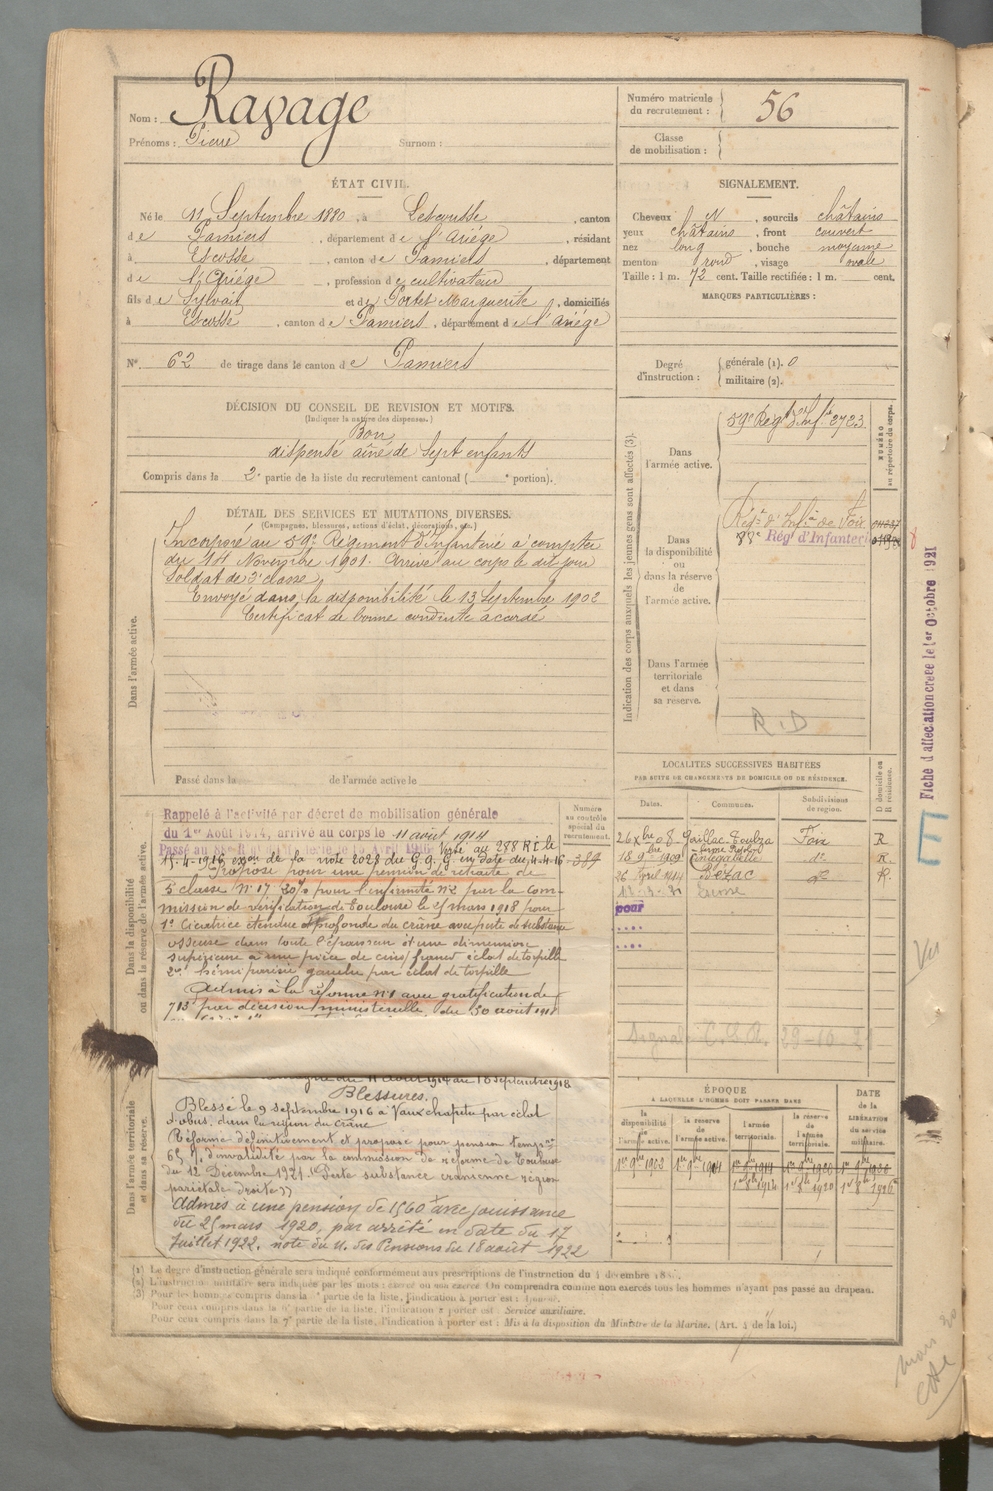 Nom : Ravage
Prénoms : Pierre Surnom :
Numéro matricule du recrutement : 56
Classe de mobilisation :
ÉTAT CIVIL.
Né le 11 Septembre 1880, à Lescousse, canton
de Pamiers, département de l'Ariége, résidant
à Escosse, canton de Pamiers, département
de l'Ariége, profession de cultivateur
fils de Sylvain et de Portet Marguerite, domiciliés
à Escosse, canton de Pamiers, département de l'Ariége
N° 62 de tirage dans le canton de Pamiers
SIGNALEMENT.
Cheveux N, sourcils châtains
yeux châtains, front couvert
nez long, bouche moyenne
menton rond, visage ovale
Taille : 1 m. 72 cent. Taille rectifiée : 1 m. cent.
MARQUES PARTICULIÈRES :
Degré d'instruction : générale (1). 0
militaire (2).
DÉCISION DU CONSEIL DE REVISION ET MOTIFS.
(Indiquer la nature des dispenses.)
Bon
dispensé aîné de sept enfants
Compris dans la 2e partie de la liste du recrutement cantonal ( e portion).
DÉTAIL DES SERVICES ET MUTATIONS DIVERSES.
(Campagnes, blessures, actions d'éclat, décorations, etc.)
Dans l'armée active.
Incorporé au 59e Régiment d'Infanterie à compter
du 14 Novembre 1901. Arrivé au corps le dit jour
Soldat de 2e classe
Envoyé dans la disponibilité le 13 Septembre 1902
Certificat de bonne conduite accordé
Passé dans la de l'armée active le
Indication des corps auxquels les jeunes gens sont affectés (3).
NUMÉRO au répertoire du corps.
Dans l'armée active.
59e Régt d'Infie 2723
Dans la disponibilité ou dans la réserve de l'armée active.
Régt d'Infie de Foix
88e Rég. d'Infanterie
Dans l'armée territoriale et dans sa réserve.
R.D
Fiche d'affectation créée le 1er Octobre 1921
Dans la disponibilité ou dans la réserve de l'armée active.
Numéro au contrôle spécial du recrutement.
Rappelé à l'activité par décret de mobilisation générale
du 1er Août 1914, arrivé au corps le 11 août 1914
Versé au 288 RI le
15-4-1916 en de la note 2028 du G.Q.G. en date du 4-4-16
Proposé pour une pension de retraite de
5e classe N° 17 30% pour l'infirmité N°2 par la Com-
mission de vérification de Toulouse le 25 mars 1918 pour
1° Cicatrice étendue et profonde du crâne avec perte de substance
osseuse dans toute l'épaisseur et une dimension
supérieure à une pièce de cinq francs éclat de torpille
2° hémiparésie gauche par éclat de torpille
Admis à la réforme N°1 avec gratification de
713 par décision ministérielle du 30 août 1918
du 11 Août 1914 au 18 septembre 1918
Dans l'armée territoriale et dans sa réserve.
Blessures.
Blessé le 9 septembre 1916 à Vaux chapitre par éclat
d'obus, dans la région du crâne
Réformé définitivement et proposé pour pension tempre
65 % d'invalidité par la commission de réforme de Toulouse
du 12 Décembre 1921. "Perte substance cranienne région
pariétale droite"
Admis à une pension de 1560 f avec jouissance
du 25 mars 1920, par arrêté en date du 17
Juillet 1922. note du M. des Pensions du 18 août 1922
LOCALITÉS SUCCESSIVES HABITÉES
PAR SUITE DE CHANGEMENTS DE DOMICILE OU DE RÉSIDENCE.
Dates. Communes. Subdivisions de région. D domicile ou R résidence.
26 Xbre 08 Gaillac-Toulza Foix R
18 9bre 1909 Cintegabelle do R
26 Avril 1914 Bézac do R
pour
Signal. C.S.R. 29-10-21
Vu
ÉPOQUE
À LAQUELLE L'HOMME DOIT PASSER DANS
la disponibilité de l'armée active. la réserve de l'armée active. l'armée territoriale. la réserve de l'armée territoriale. DATE de la LIBÉRATION du service militaire.
1er 9bre 1903 1er 9bre 1904 1er 8bre 1914 1er 8bre 1920 1er 8bre 1926
(1) Le degré d'instruction générale sera indiqué conformément aux prescriptions de l'instruction du 4 décembre
(2) L'instruction militaire sera indiquée par les mots : exercé ou non exercé. On comprendra comme non exercés tous les hommes n'ayant pas passé au drapeau.
(3) Pour les hommes compris dans la partie de la liste, l'indication à porter est :
Pour ceux compris dans la 6e partie de la liste, l'indication à porter est : Service auxiliaire.
Pour ceux compris dans la 7e partie de la liste, l'indication à porter est : Mis à la disposition du Ministre de la Marine. (Art. 4 de la loi.)